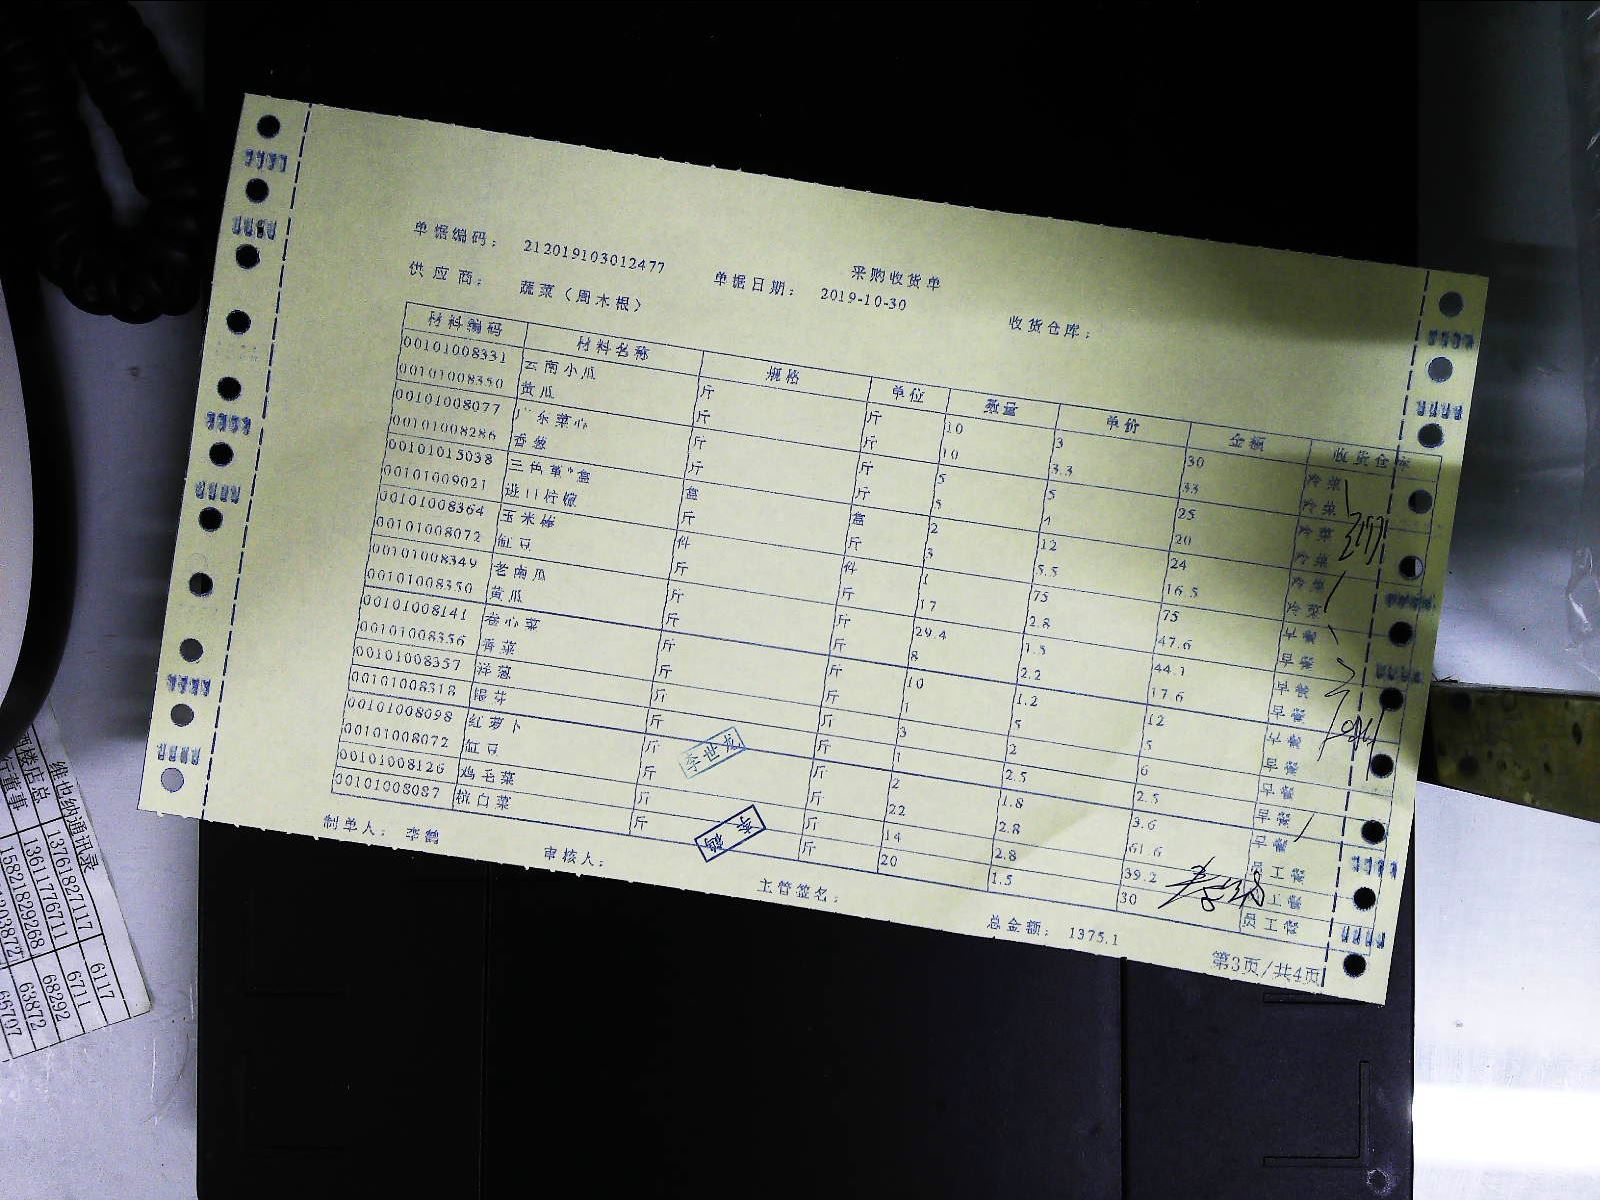 采购收货单
单据编码： 212019103012477 单据日期： 2019-10-30 收货仓库：
供应商： 蔬菜（周木根）
材料编码 材料名称 规格 单位 数量 单价 金额 收货仓库
00101008331 云南小瓜 斤 斤 10 3 30 冷菜
00101008350 黄瓜 斤 斤 10 3.3 33 冷菜
00101008077 广东菜心 斤 斤 5 5 25 冷菜
00101008286 香葱 斤 斤 5 4 20 冷菜
00101015038 三色堇*盒 盒 盒 2 12 24 冷菜
00101009021 进口柠檬 斤 斤 3 5.5 16.5 冷菜
00101008364 玉米棒 件 件 1 75 75 早餐
00101008072 缸豆 斤 斤 17 2.8 47.6 早餐
00101008349 老南瓜 斤 斤 29.4 1.5 44.1 早餐
00101008350 黄瓜 斤 斤 8 2.2 17.6 早餐
00101008141 卷心菜 斤 斤 10 1.2 12 早餐
00101008356 香菜 斤 斤 1 5 5 早餐
00101008357 洋葱 斤 斤 3 2 6 早餐
00101008318 银芽 斤 斤 1 2.5 2.5 早餐
00101008098 红萝卜 斤 斤 2 1.8 3.6 早餐
00101008072 缸豆 斤 斤 22 2.8 61.6 员工餐
00101008126 鸡毛菜 斤 斤 14 2.8 39.2 员工餐
00101008087 杭白菜 斤 斤 20 1.5 30 员工餐
制单人： 李鹤 审核人： 主管签名： 总金额： 1375.1
第3页/共4页
李鹤
维也纳通讯录
13761827117 6117
13611776711 6711
15821829268 68292
63872
65707